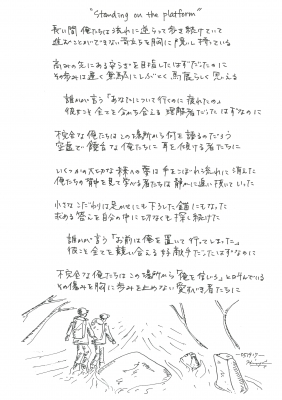 "Standing on the platform"
長い間 俺たちは流れに逆らって歩き続けていて
進むことができない苛立ちを胸に隠し持っている
高みの先にある安らぎを目指したはずだったのに
その歩みは遅く 無駄にしぶとく 馬鹿らしく思える
誰かが言う「あなたについて行くのに疲れたの」
彼女こそ全てを分かち合える理解者だったはずなのに
不完全な俺たちは この場所から何を語るのだろう
空虚で饒舌な俺たちに 耳を傾ける者たちに
いくつかの大切な 仲間の夢は 手をこぼれ流れに消えた
俺たちの背中を見て学がる者たちは 静かに追い抜いていった
小さなこだわりは足かせにも 下ろした錨にもなった
求める答えを自分の中に 切れなく探し続けた
誰かが言う「お前は俺を置いて行ってしまった」
彼こそ全てを競い合える好敵手だったはずなのに
不完全な俺たちは この場所から「俺を信じろ」と叫んでいる
その痛みを胸に歩みを止めない 愛すべき者たちに